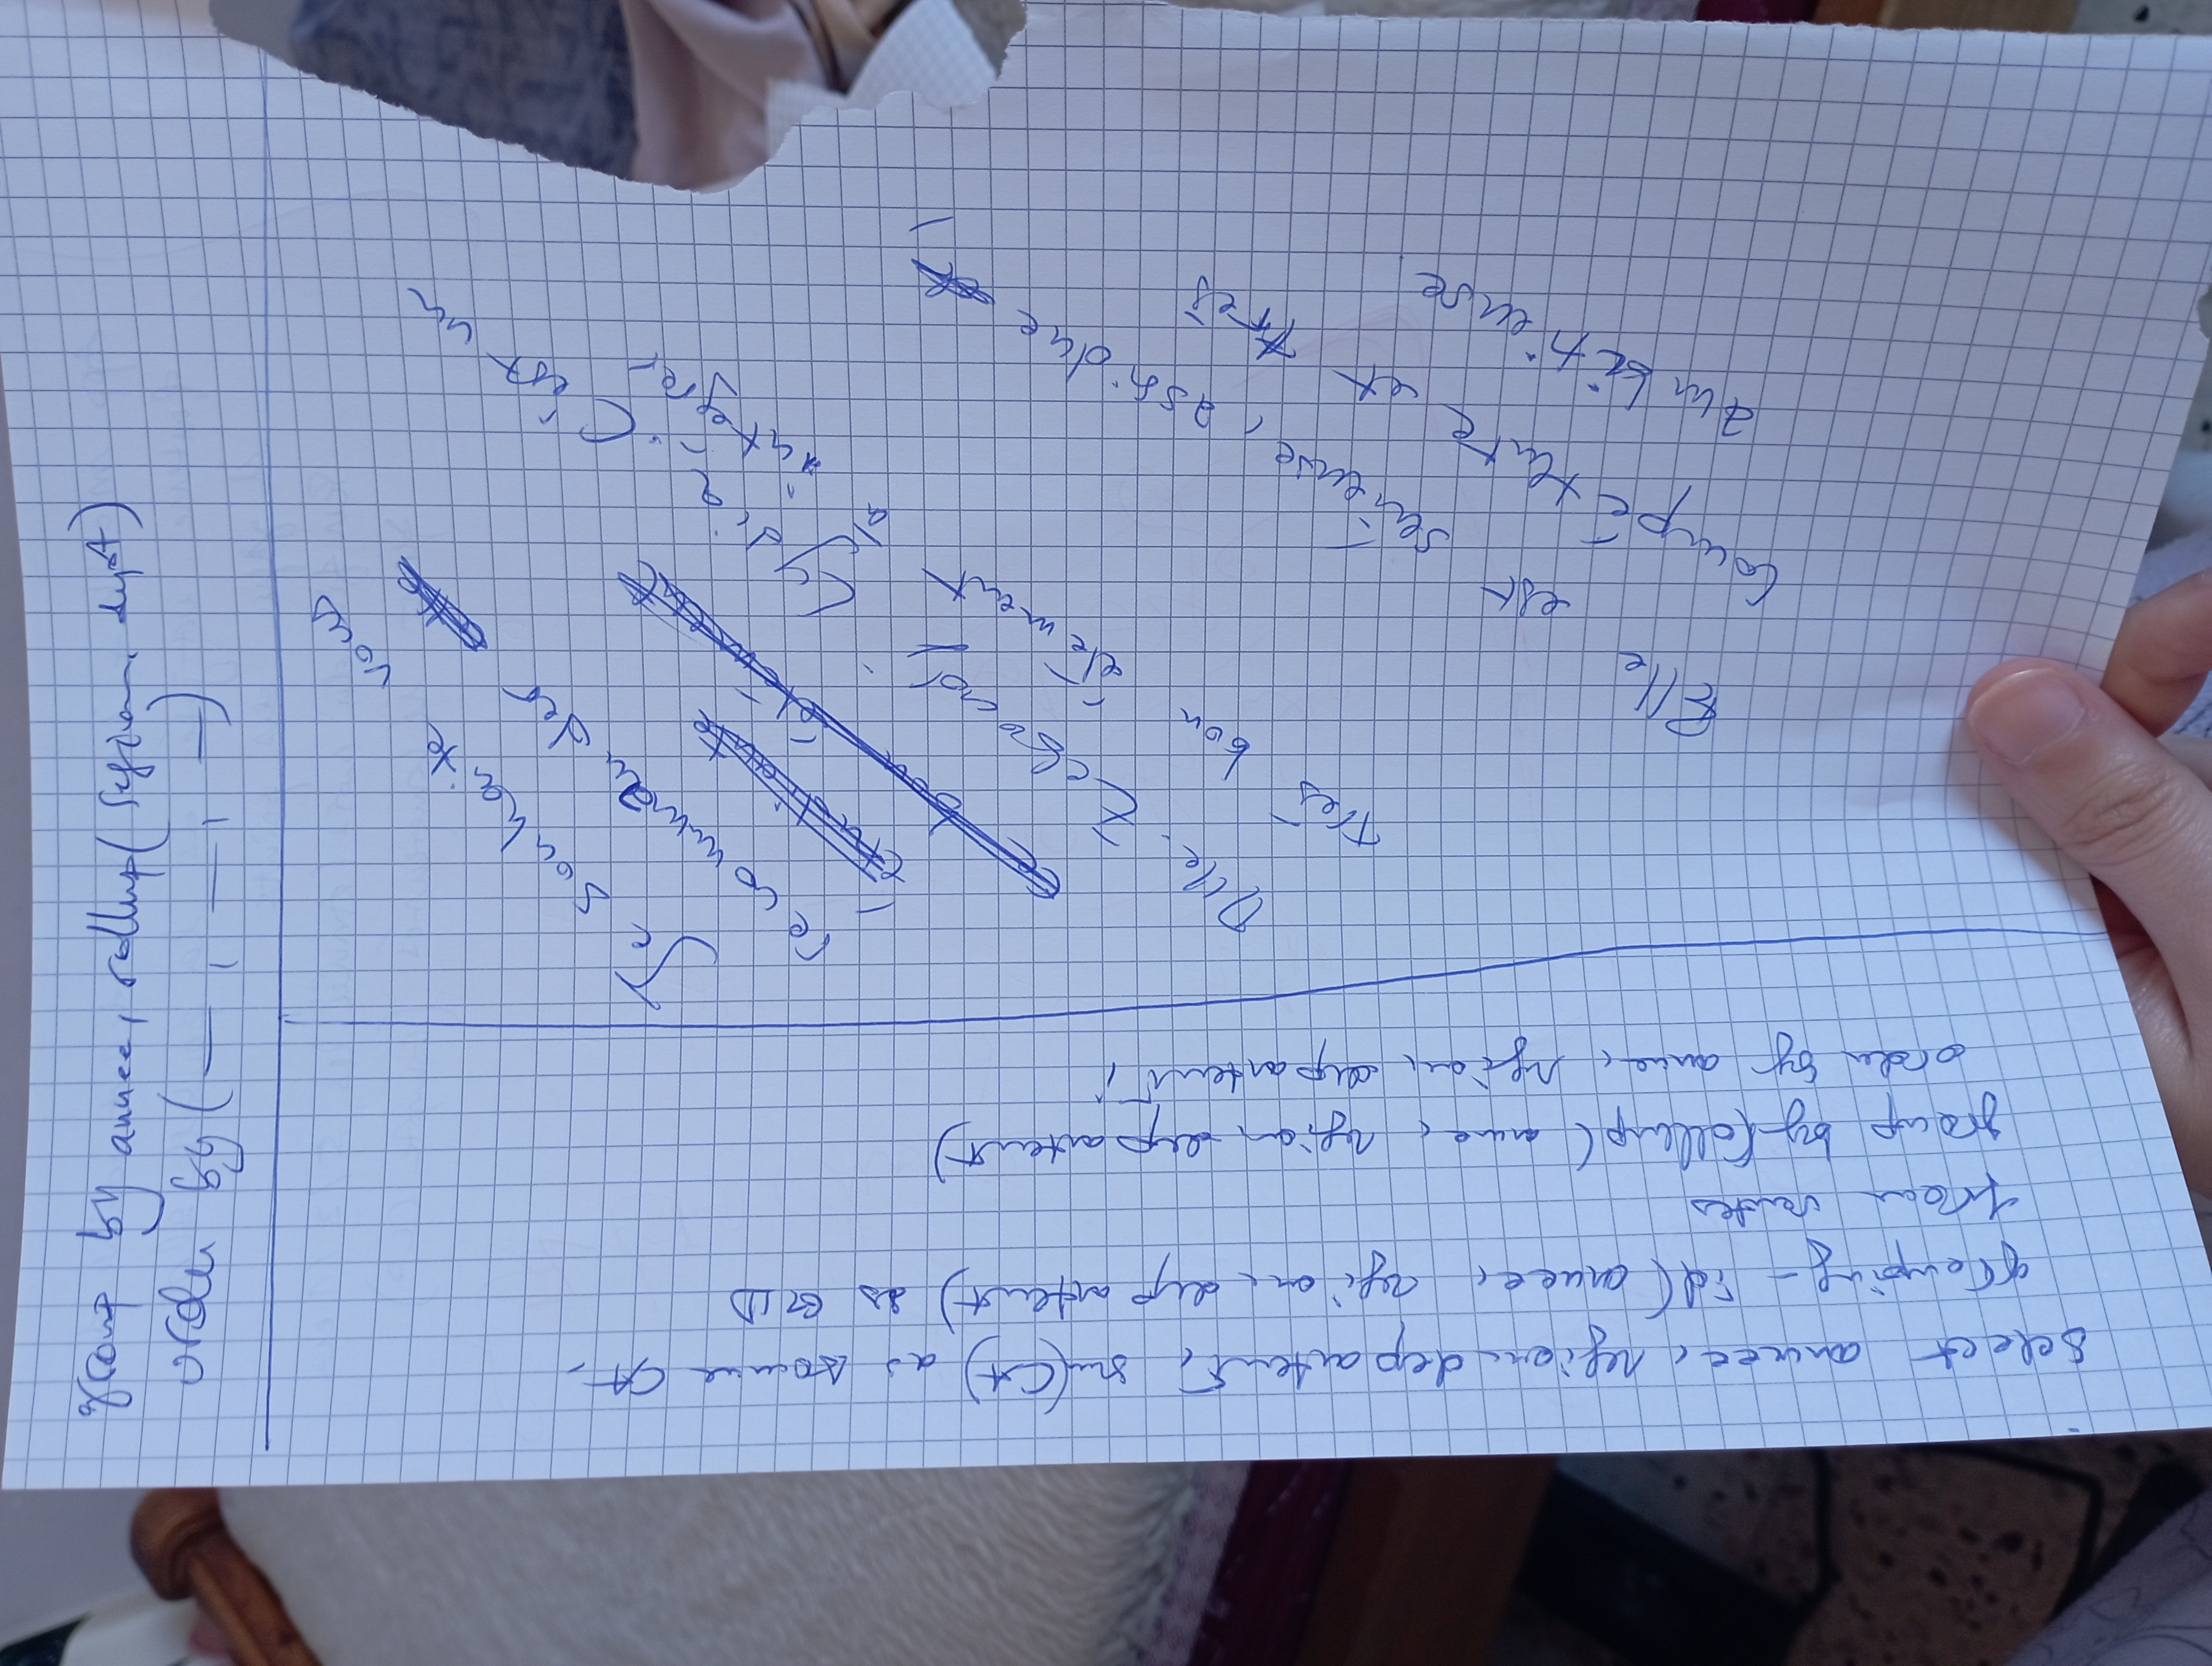 group by annee, rollup( region, dept)
order by ( — , — , — )
select annee, region, departent, sum(CA) as somme CA,
grouping-id( annee, region, departent) as GID
from ventes
group by rollup( annee, region, departent)
order by annee, region, departent;
Je souhaite vous
recommander
Mlle. Zebouo Lydia. C'est un
Très bon élément à intégrer
Elle est sérieuse, assidue
compétente et très
ambitieuse